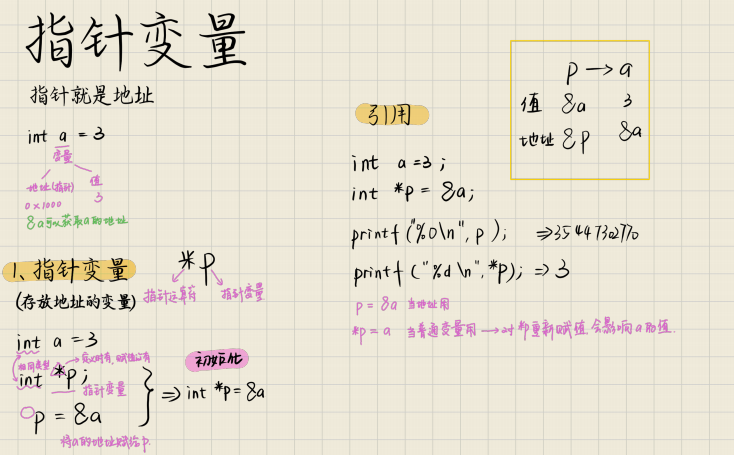 指针变量
指针就是地址
int a = 3
变量
地址(指针) 值
0x1000 3
&a可以获取a的地址
1、指针变量
(存放地址的变量)
*p
指针运算符 指针变量
int a = 3
相同类型
定义时有，赋值没有
int *p;
指针变量
p = &a
将a的地址赋给p.
初始化
⇒ int *p = &a
引用
int a = 3;
int *p = &a;
printf("%0\n", p); ⇒35447302770
printf("%d\n", *p); ⇒ 3
p = &a 当地址用
*p = a 当普通变量用 → 对*p重新赋值,会影响a的值.
p → a
值 &a 3
地址 &p &a